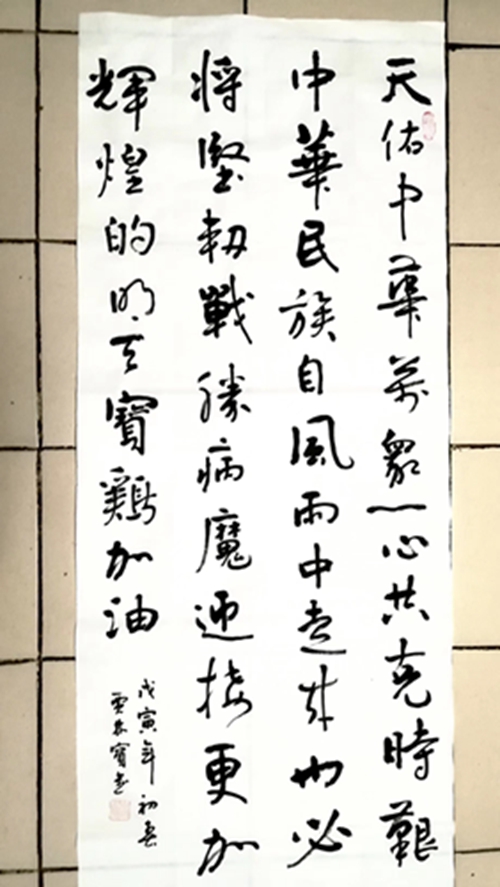 天佑中華萬眾一心共克時艱
中華民族自風雨中走來也必
将堅韌戰勝病魔迎接更加
輝煌的明天寶鷄加油
戊寅年初春
寶書